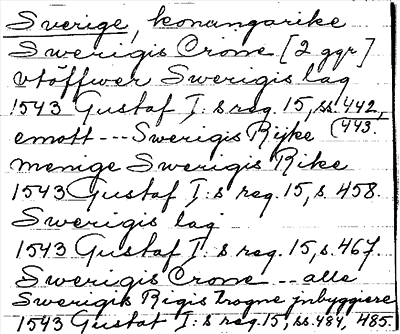 Sverige, konungarike
Swerigis Crone [2 ggr]
vtöffwer Swerigis lag
1543 Gustaf I:s reg. 15, ss. 442,
emott --- Swerigis Rijke (443.
menige Swerigis Rike
1543 Gustaf I:s reg. 15, s. 458.
Swerigis lag
1543 Gustaf I:s reg. 15, s. 467.
Swerigis Crone --- alle
Swerigis Rigis trogne jnbyggiere
1543 Gustaf I:s reg. 15, ss. 484, 485.